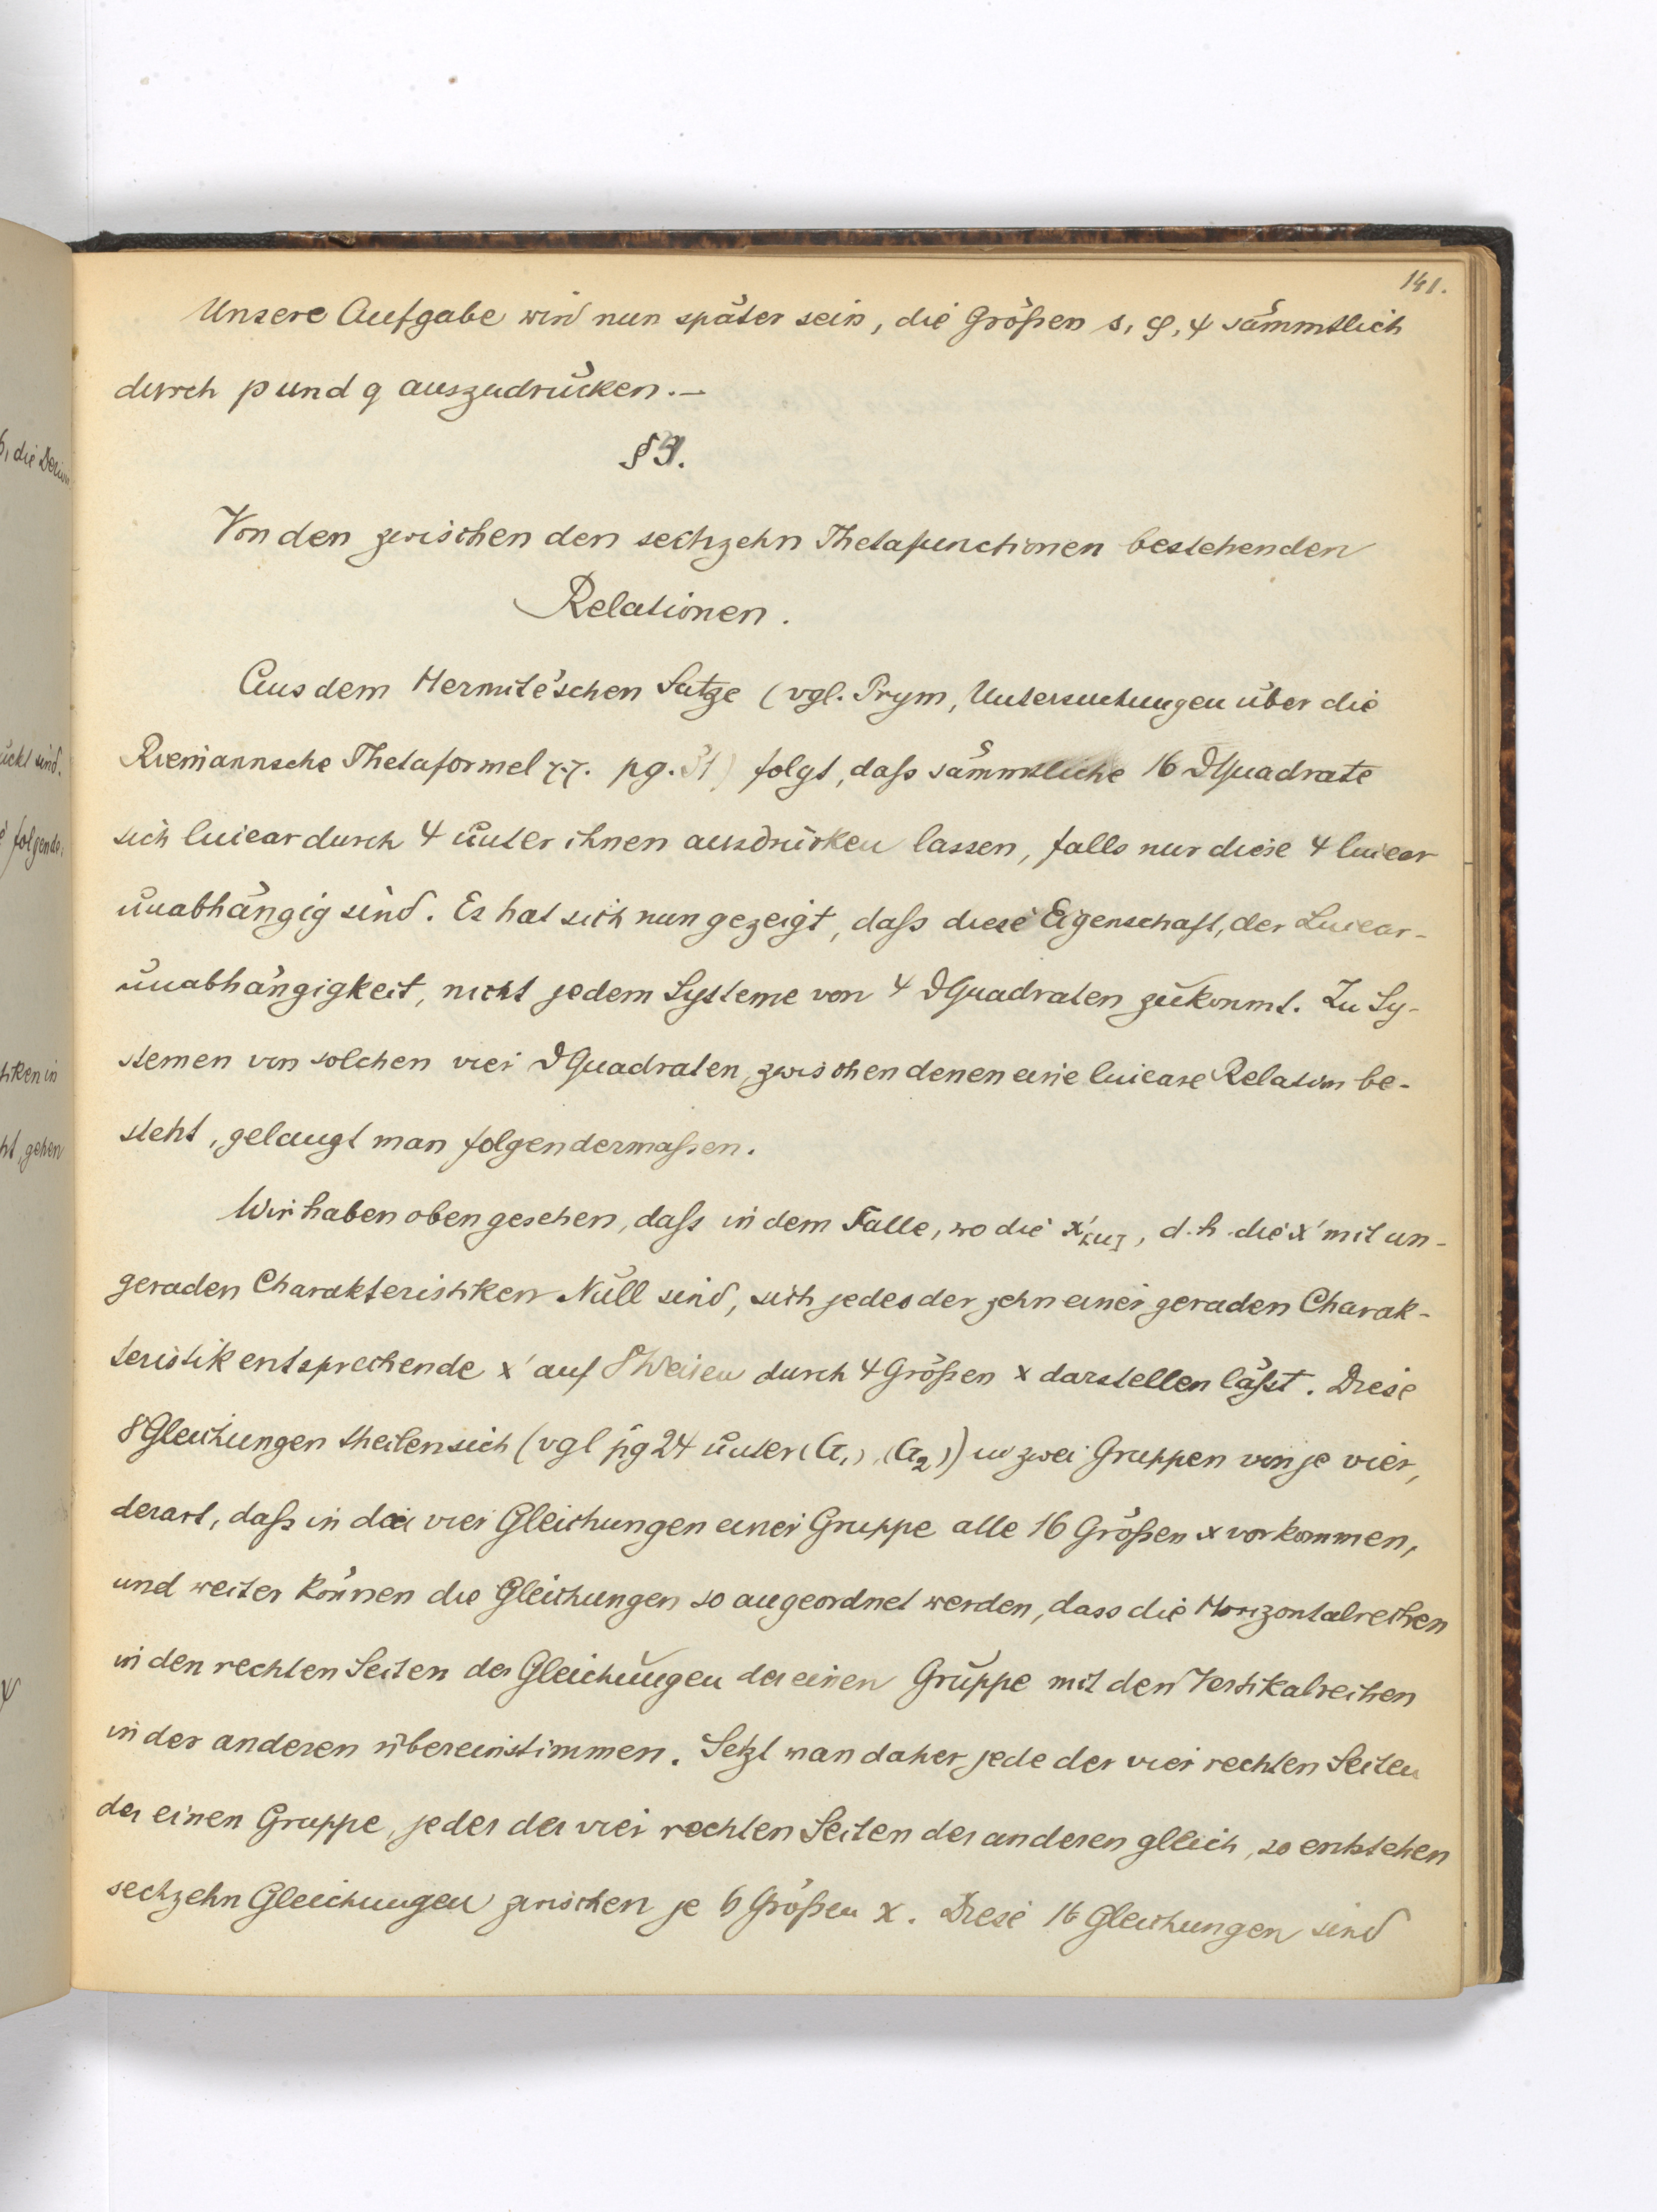 141.
Unsere Aufgabe wird nun später sein, die Größen s, φ, ψ sämmtlich
durch p und q auszudrücken. —
§ 9.
Von den zwischen den sechzehn Thetafunctionen bestehenden
Relationen.
Aus dem Hermite'schen Satze (vgl. Prym, Untersuchungen über die
Riemannsche Thetaformel pg. 31) folgt, daß sämmtliche 16 ϑQuadrate
sich linear durch 4 unter ihnen ausdrücken lassen, falls nur diese 4 linear
unabhängig sind. Es hat sich nun gezeigt, daß diese Eigenschaft, der Linear-
unabhängigkeit, nicht jedem Systeme von 4 ϑQuadraten zukommt. Zu Sy-
stemen von solchen vier ϑQuadraten, zwischen denen eine lineare Relation be-
steht, gelangt man folgendermaßen.
Wir haben oben gesehen, daß in dem Falle, wo die x'[u], d. h. die x' mit un-
geraden Charakteristiken Null sind, sich jedes der zehn einer geraden Charak-
teristik entsprechende x' auf 8 Weisen durch 4 Größen x darstellen läßt. Diese
8 Gleichungen theilen sich (vgl pg 24 unter (G₁), (G₂)) in zwei Gruppen von je vier,
derart, daß in den vier Gleichungen einer Gruppe alle 16 Größen x vorkommen,
und weiter können die Gleichungen so angeordnet werden, dass die Horizontalreihen
in den rechten Seiten der Gleichungen der einen Gruppe mit den Vertikalreihen
in der anderen übereinstimmen. Setzt man daher jede der vier rechten Seiten
der einen Gruppe, jeder der vier rechten Seiten der anderen gleich, so entstehen
sechzehn Gleichungen zwischen je 6 Größen x. Diese 16 Gleichungen sind
die
ückt sind.
folgende
tiken in
ht, gehen
ψ